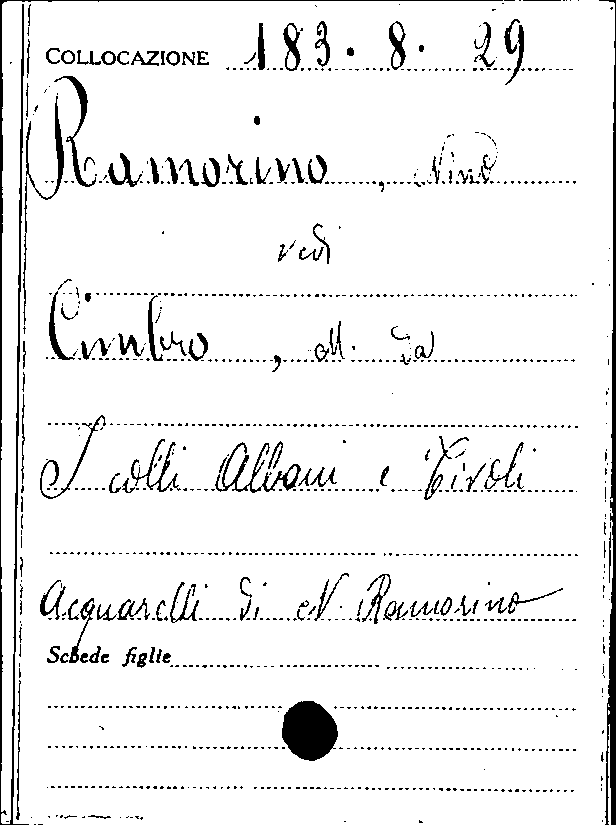 COLLOCAZIONE 183. 8. 29
Ramorino, Nino
vedi
Cimbro, M. da
I colli Albani e Tivoli
Acquarelli di N. Ramorino
Schede figlie